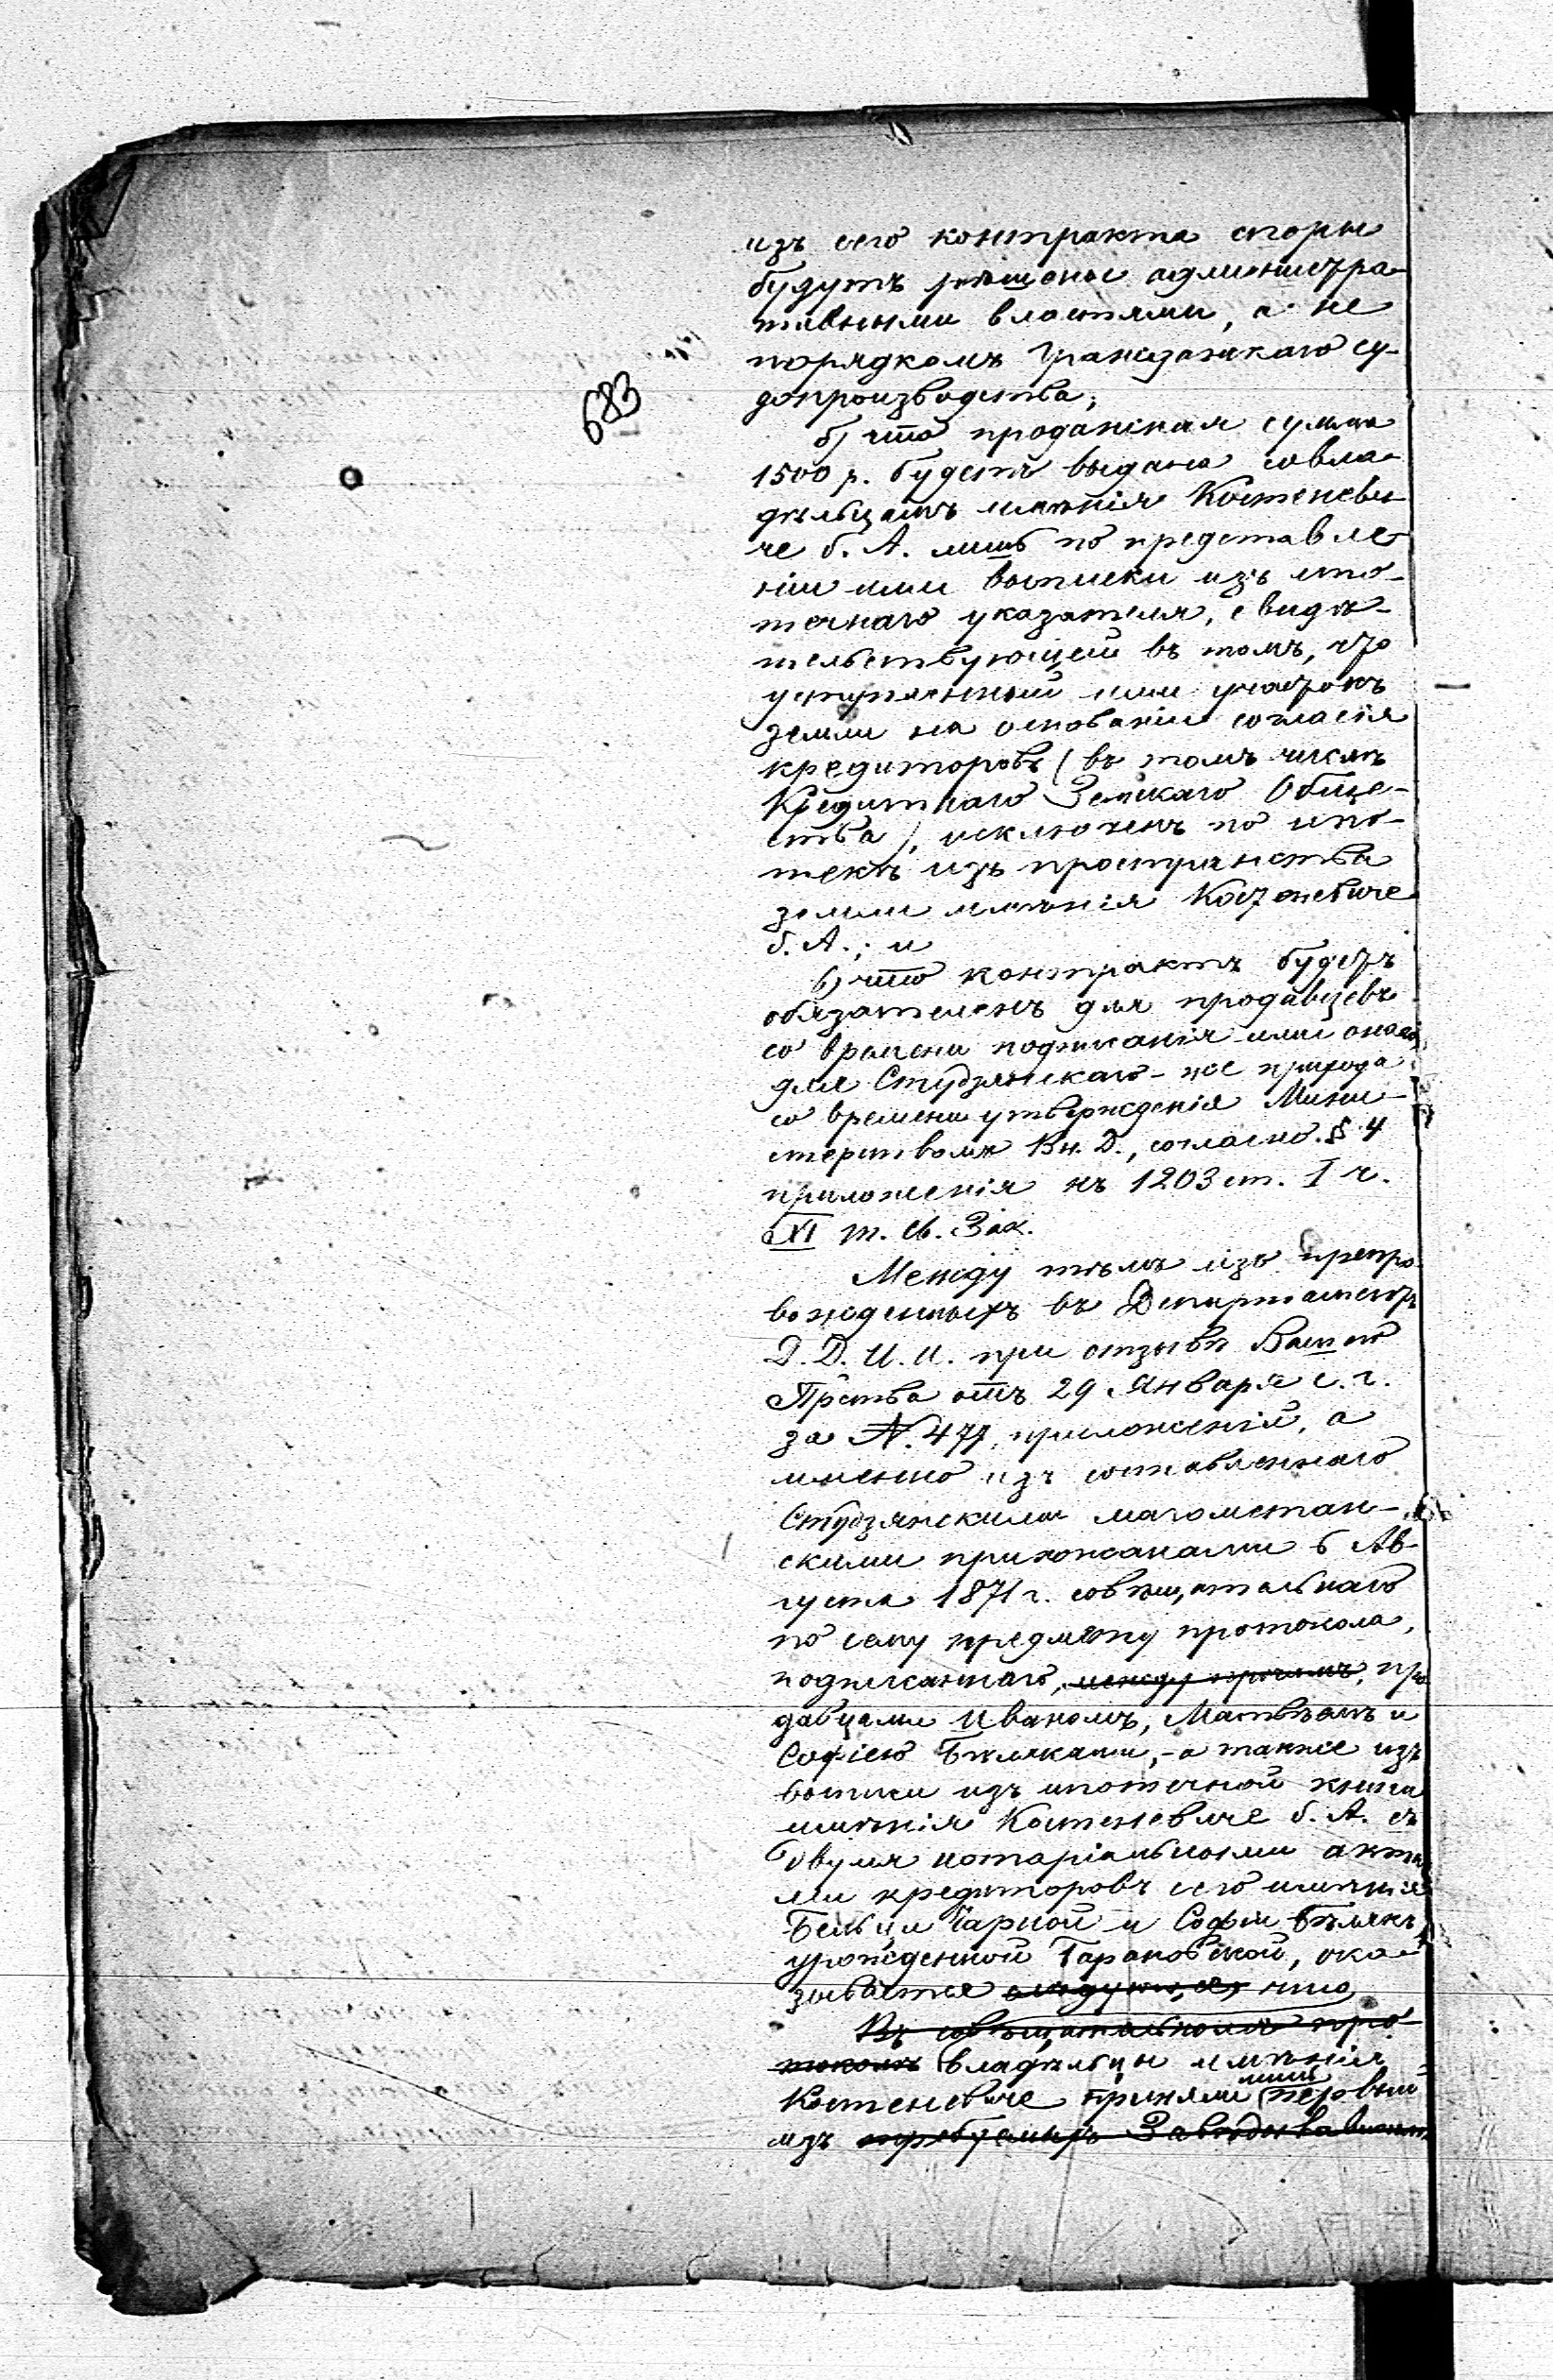 изъ сего контракта споры
будутъ рѣшены администра-
тивными властями, а не
порядкомъ Гражданскаго су-
допроизводства;
683
б) что продажная сумма
1500 р. будетъ выдана совла-
дѣльцамъ имѣнія Костеневи-
че б. А. лишь по представле-
ніи ими выписки изъ ипо-
течнаго указателя, свидѣ-
тельствующей въ томъ, что
уступленный ими участокъ
земли на основаніи согласія
кредиторовъ (въ томъ числѣ
Кредитнаго Земскаго Обще-
ства), исключенъ по ипо-
текѣ изъ пространства
земли имѣнія Костеневиче
б. А.; и
в) что контрактъ будетъ
обязателенъ для продавцевъ
со времени подписанія ими онаго,
для Студзянскаго - же прихода
со времени утвержденія Мини-
стерствомъ Вн. Д., согласно § 4
приложенія къ 1203 ст. I ч.
XI т. Св. Зак.
Между тѣмъ изъ препро-
вожденныхъ въ Департаментъ
Д. Д. И. И. при отзывѣ Вашего
Прства отъ 29 Января с. г.
за N. 477, приложеній, а
именно изъ составленнаго
Студзянскими магометан-
скими прихожанами 6 Ав-
густа 1871 г. совѣщательнаго
по сему предмету протокола,
подписаннаго, между прочимъ, про
давцами Иваномъ, Матвѣемъ и
Софіею Бѣляками, - а также изъ
выписи изъ ипотечной книги
имѣнія Костеневиче б. А. съ
двумя нотаріальными акта
ми кредиторовъ сего имѣнія
Бельци Чарной и Софіи Бѣлякъ
урожденной Тарановской, ока-
зывается слѣдующее, что
Въ совѣщательномъ про-
токолѣ владѣльцы имѣнія
Костеневиче приняли лишь первый
изъ требуемыхъ